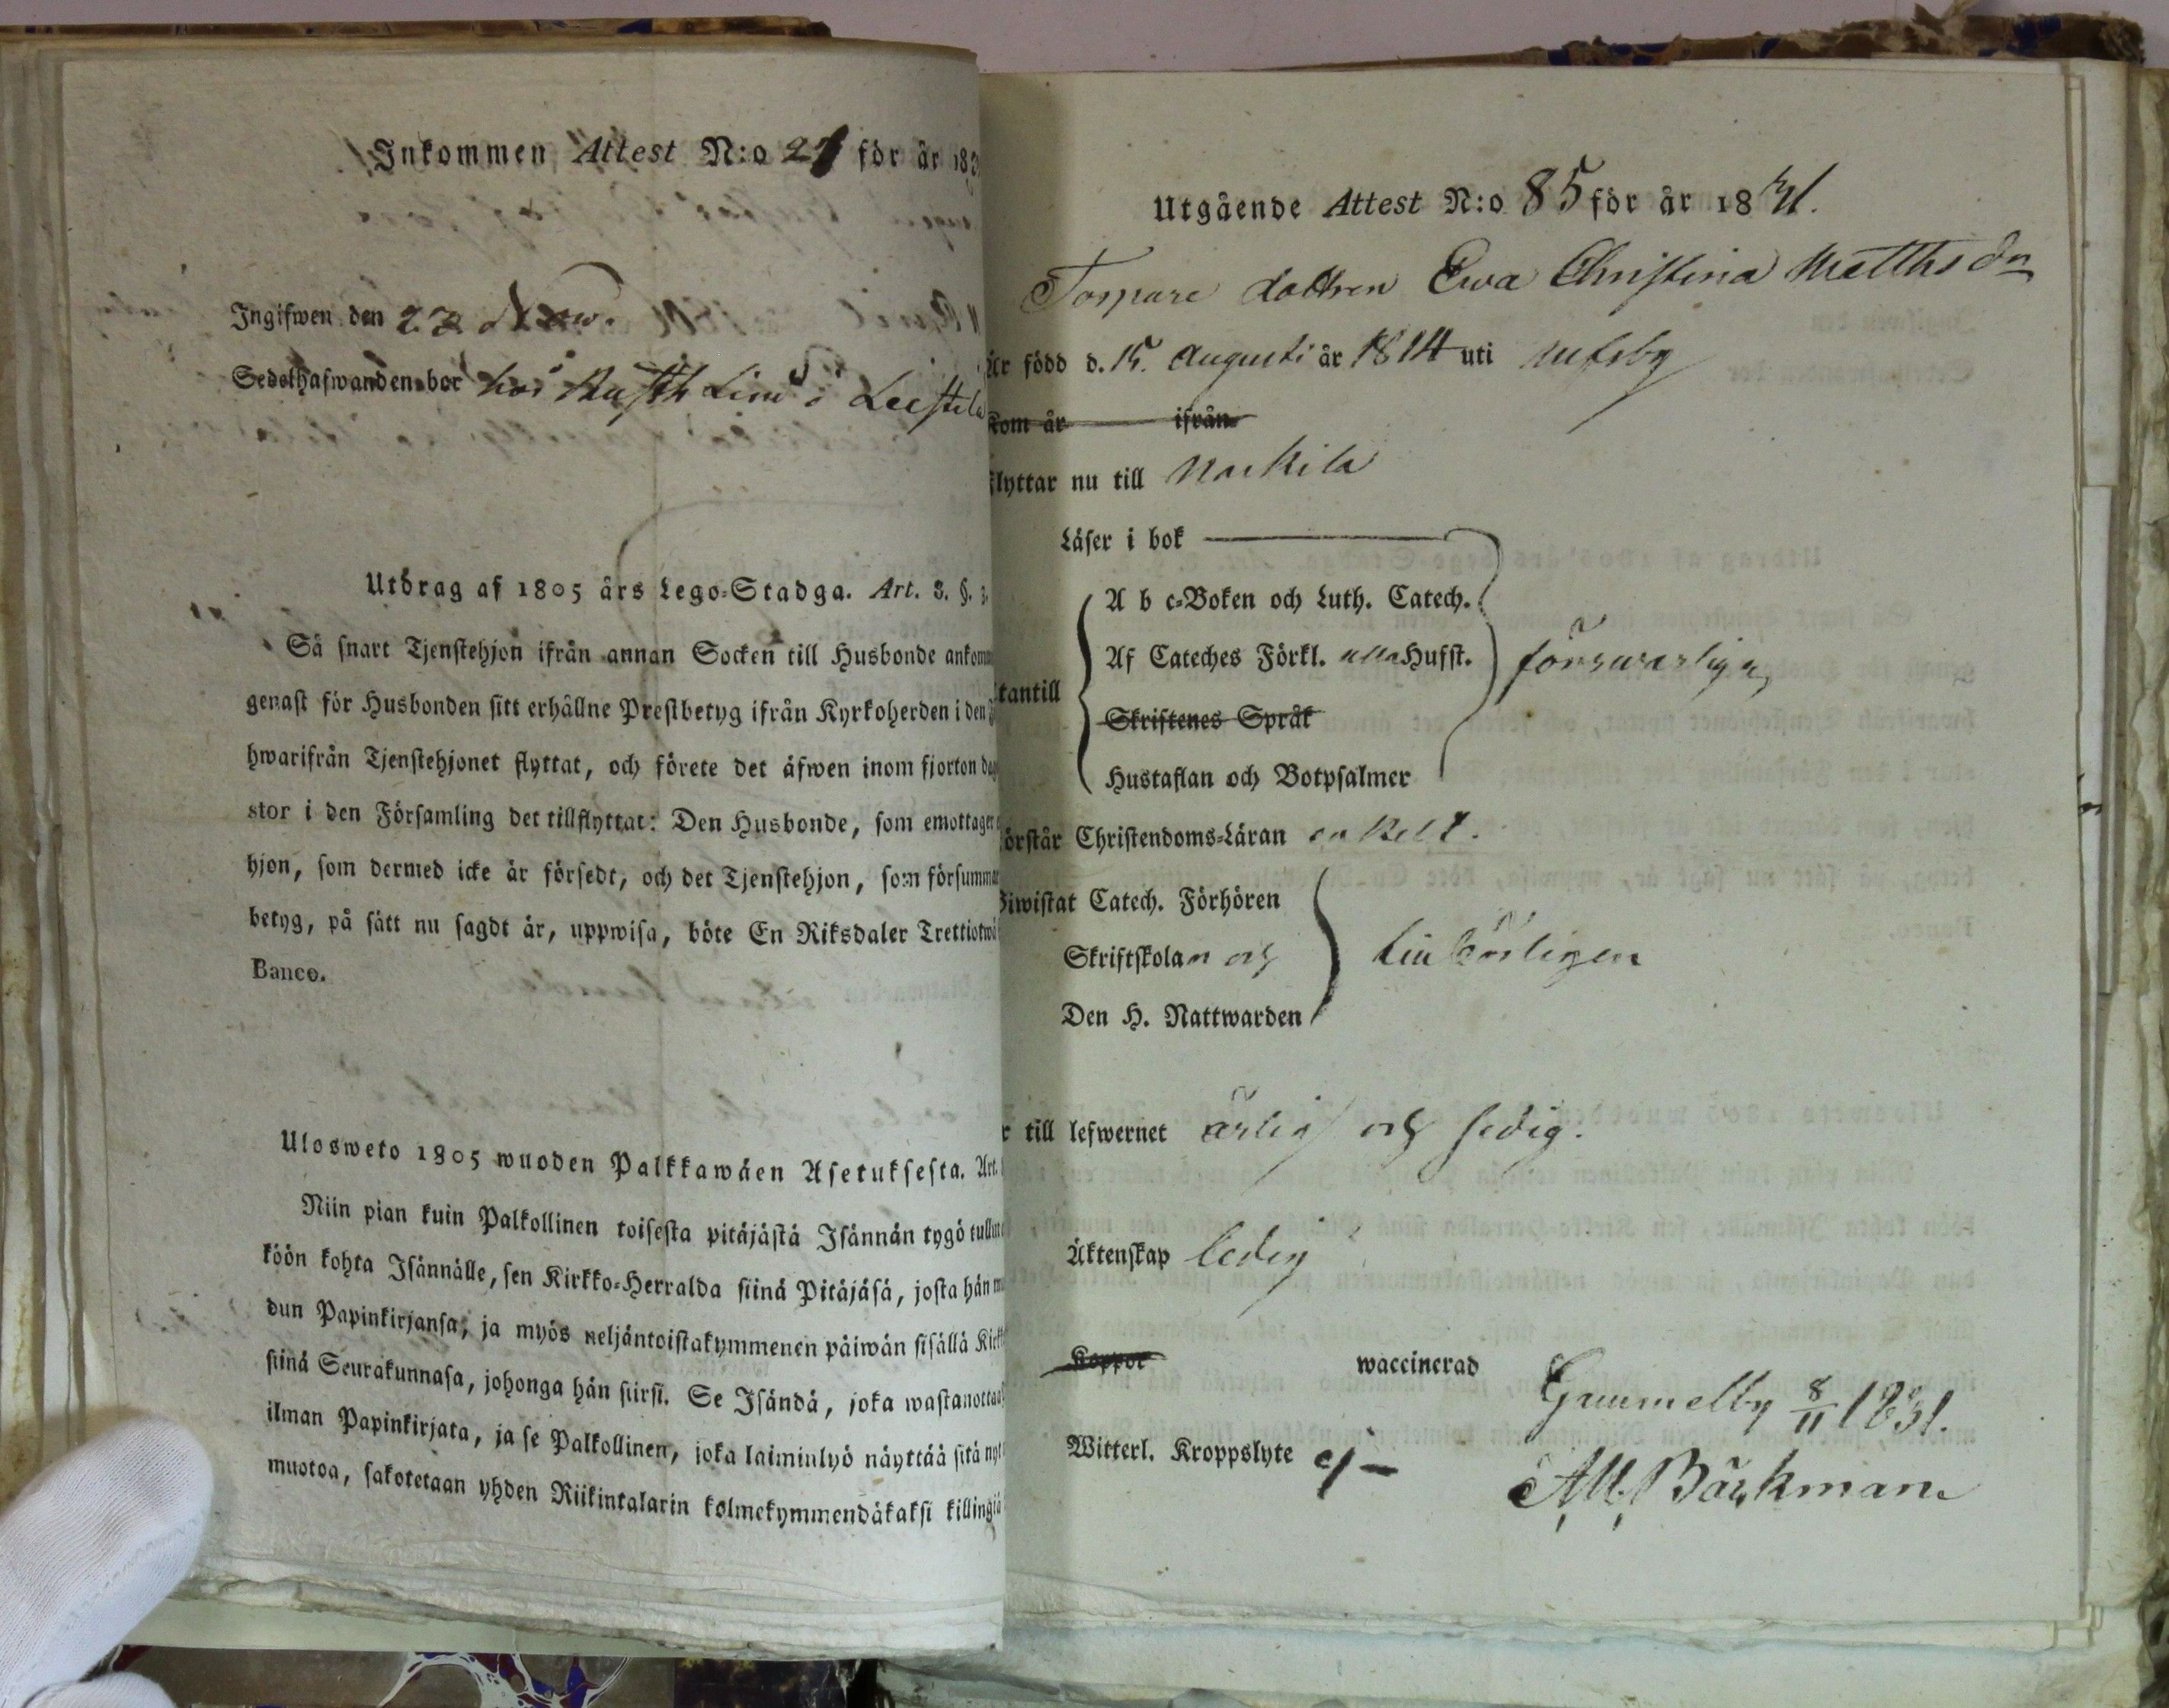 Inkommen Attest N:o 21 för år 183
Ingifwen den 22 Nov.
Sedelhafwanden bor hos Rusth Lind i Leistilä
Utdrag af 1805 års Lego-Stadga. Art. 3. §.
Så snart Tjenstehjon ifrån annan Socken till Husbonde ankomm
genast för Husbonden sitt erhållne Prestbetyg ifrån Kyrkoherden i den
hwarifrån Tjenstehjonet flyttat, och förete det äfwen inom fjorton dag
stor i den Församling det tillflyttat: Den Husbonde, som emottager
hjon, som dermed icke är försedt, och det Tjenstehjon, som försummar
betyg, på sätt nu sagdt är, uppwisa, böte En Riksdaler Trettiotwå
Banco.
Ulosweto 1805 wuoden Palkkawäen Asetuksesta. Art.
Niin pian kuin Palkollinen toisesta pitäjästä Isännän tygö tullu
köön kohta Isännälle, sen Kirkko-Herralda siinä Pitäjäsä, josta hän mu
dun Papinkirjansa, ja myös neljäntoistakymmenen päiwän sisällä Kirk
siinä Seurakunnasa, johonga hän siirsi. Se Isändä, joka wastanottaa
ilman Papinkirjata, ja se Palkollinen, joka laiminlyö näyttää sitä nyt
muotoa, sakotetaan yhden Riikintalarin kolmekymmendäkaksi killingiä
Utgående Attest N:o 85 för år 1831.
Torpare dottren Ewa Christina Matthsdr
är född d. 15. Augusti år 1814 uti Rufsby
kom år ifrån
flyttar nu till Nackila
Läser i bok
A b c-Boken och Luth. Catech.
Af Cateches Förkl. alla Hufst.
försvarligen
tantill
Skriftenes Språk
Hustaflan och Botpsalmer
örstår Christendoms-Läran enkelt.
Biwistat Catech. Förhören
Skriftskolan och
behörligen
Den H. Nattwarden
r till lefwernet ärlig och sedig.
Äktenskap ledig
Koppor waccinerad
Gammelby 8/11 1831.
Witterl. Kroppslyte ej –
Bäckman